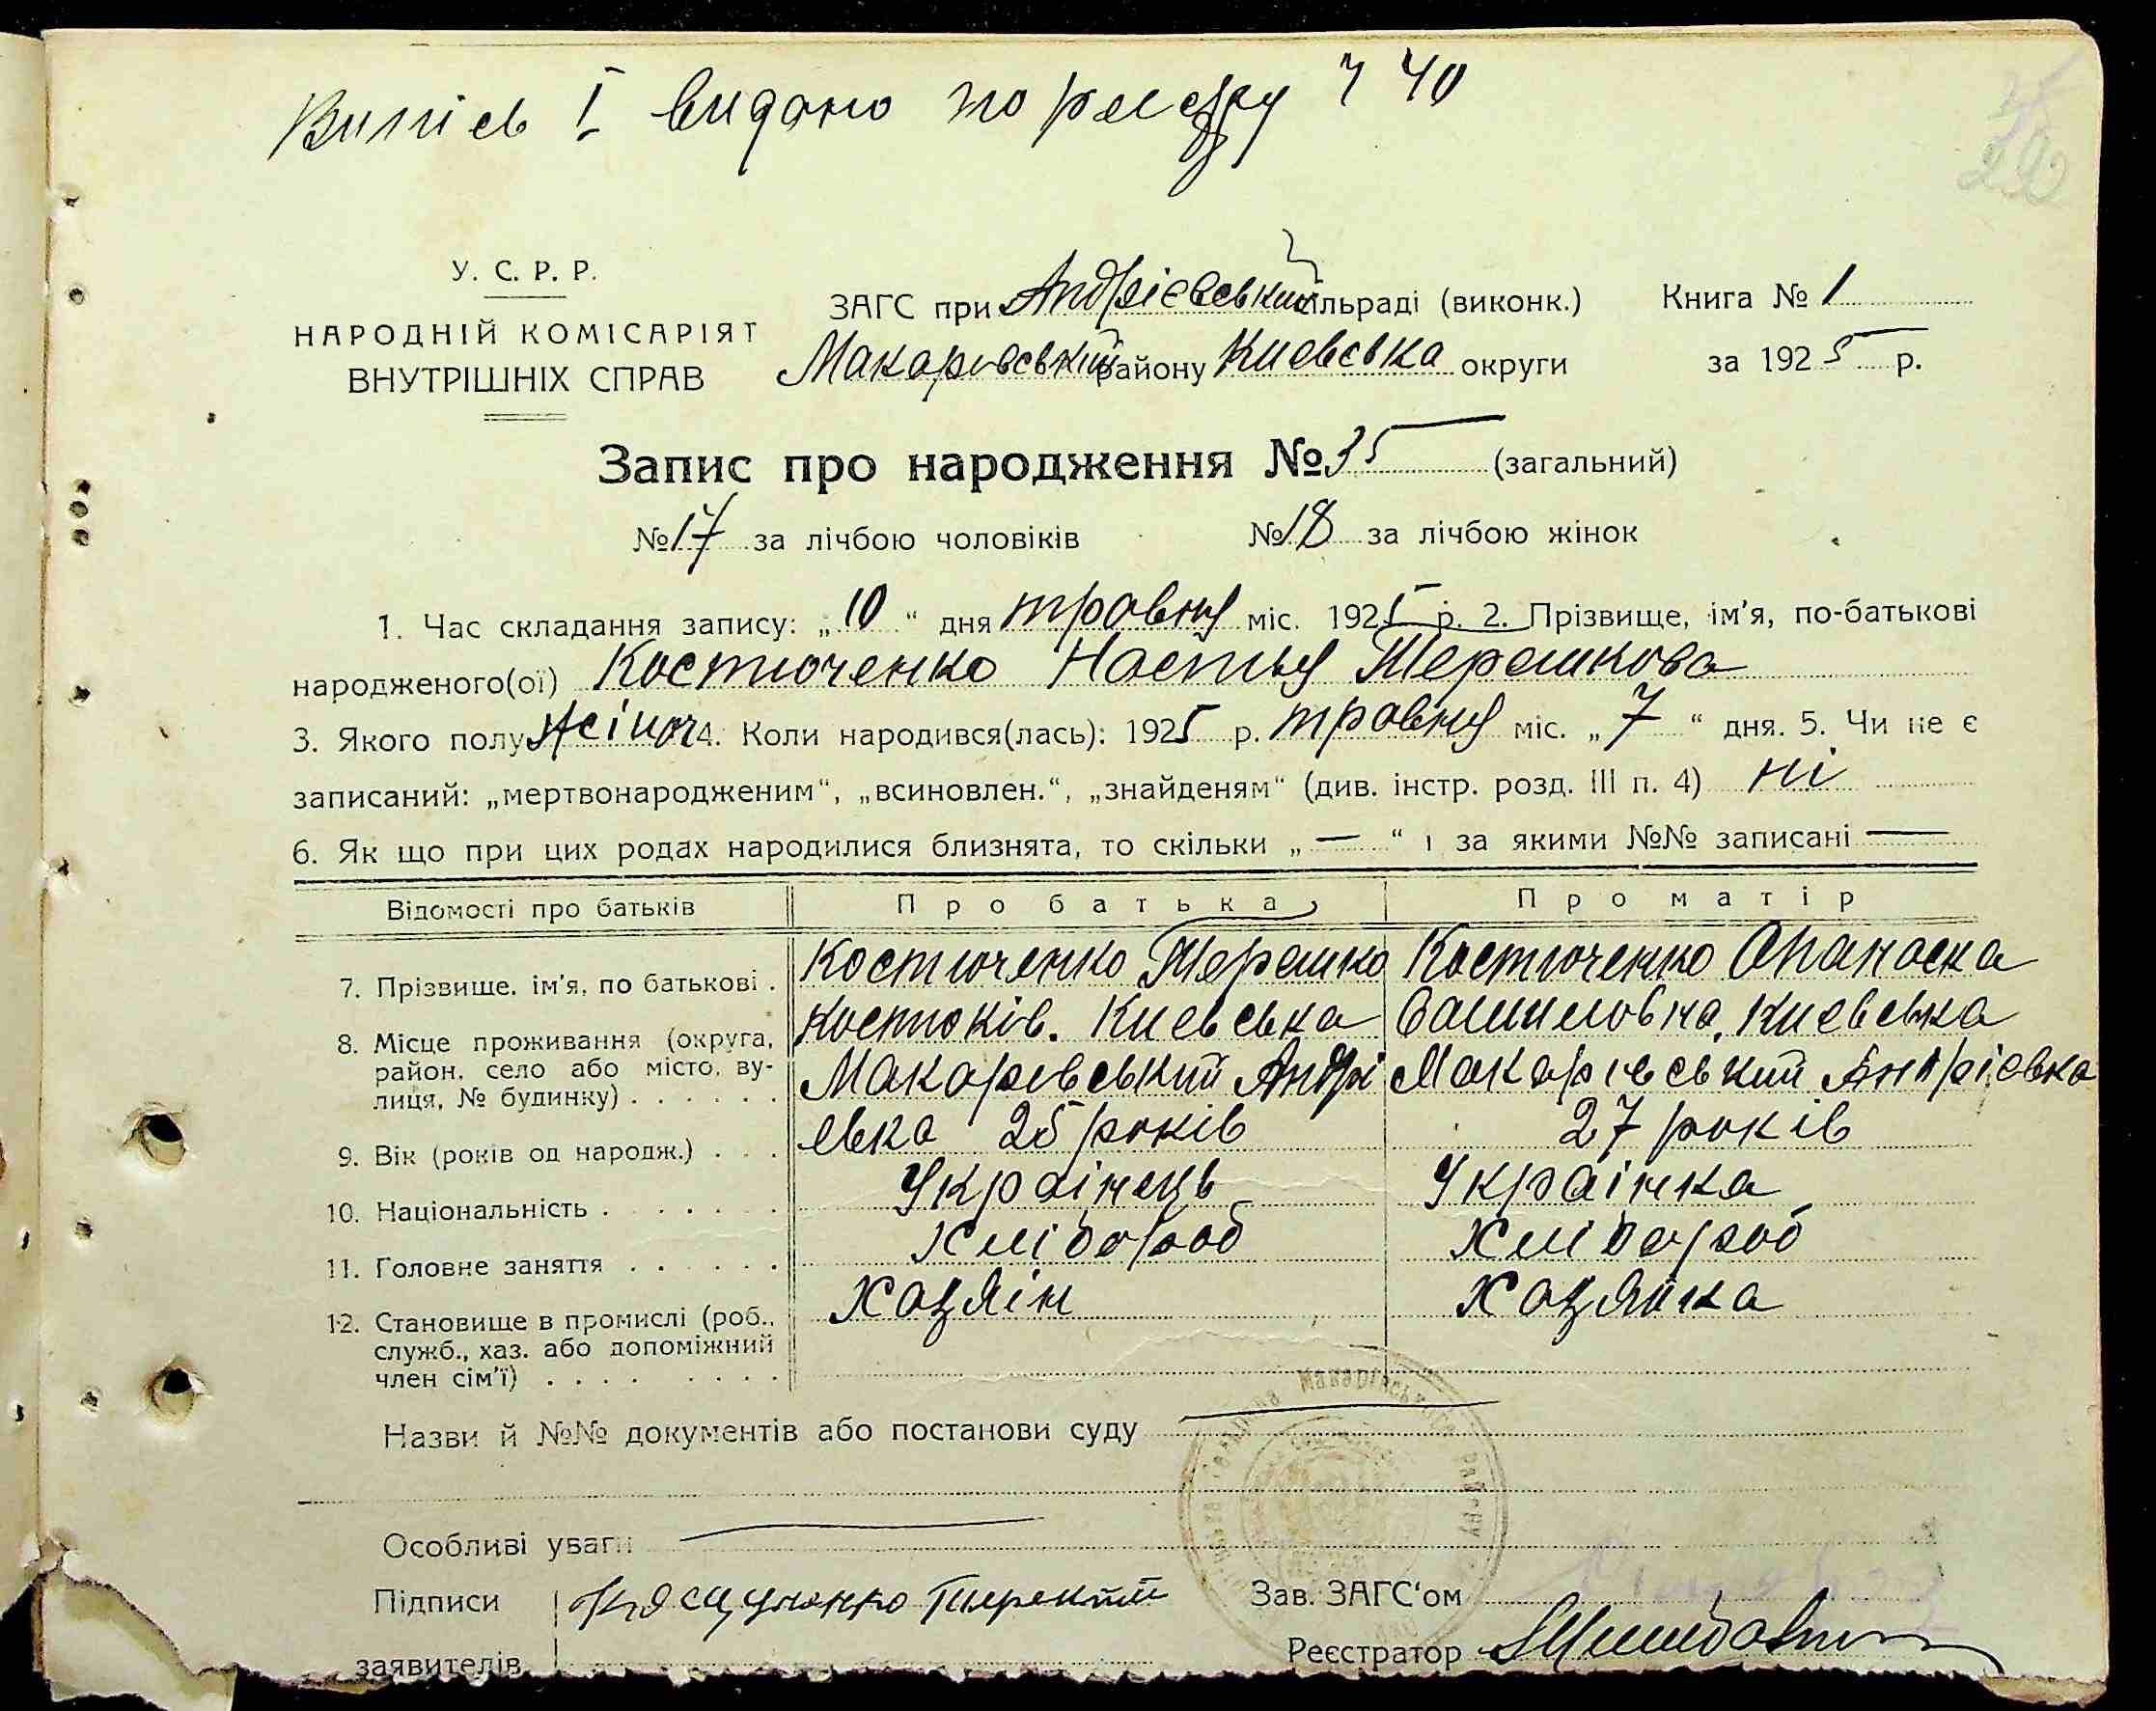 Випісь I видано по реєстру Ч 40
У. С. Р. Р.
НАРОДНІЙ КОМІСАРІЯТ
ВНУТРІШНІХ СПРАВ
ЗАГС при Андрієвський сільраді (виконк.)
Макаровський району Киевська округи
Книга № 1
за 1925 р.
Запис про народження № 35 (загальний)
№ 17 за лічбою чоловіків № 18 за лічбою жінок
1. Час складання запису: „10“ дня травня міс. 1925 р. 2. Прізвище, ім'я, по-батькові
народженого(ої) Костюченко Настья Терешкова
3. Якого полу жіноч 4. Коли народився(лась): 1925 р. травня міс. „7“ дня. 5. Чи не є
записаний: „мертвонародженим“, „всиновлен.“, „знайденям“ (див. інстр. розд. III п. 4) ні
6. Як що при цих родах народилися близнята, то скільки „—“ і за якими №№ записані —
Відомості про батьків Про батька Про матір
7. Прізвище, ім'я, по батькові . Костюченко Терешко Костюченко Опанаска
8. Місце проживання (округа, костюків. Киевська Вашиловна, Киевська
район, село або місто, ву-
лиця, № будинку) . . . . . . Макаровський Андрі Макарієвський Андрієвка
9. Вік (років од народж.) . . . евка 25 років 27 років
10. Національність . . . . . . . Українець Українка
11. Головне заняття . . . . . . Хлібороб Хлібороб
12. Становище в промислі (роб., Хазяін Хазяйка
служб., хаз. або допоміжний
член сім'ї) . . . . . . . . .
Назви й №№ документів або постанови суду
Особливі уваги
Підписи
заявителів
Зав. ЗАГС'ом
Реєстратор